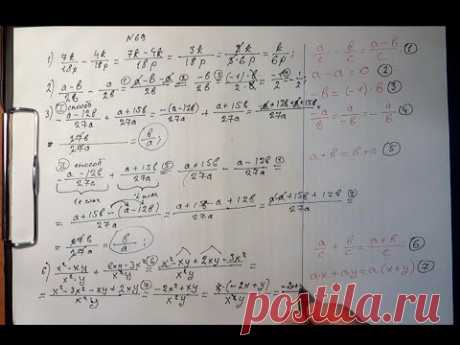 №69
1) 7k/18p − 4k/18p = (7k−4k)/18p = 3k/18p = 3k/(3·6p) = k/6p;
2) (a−b)/2b − a/2b = (a−b−a)/2b = −b/2b = (−1)·b/(2·b) = −1/2 = −1/2;
3) I способ
−(a−12b)/27a + (a+15b)/27a = (−(a−12b)+a+15b)/27a =
= 27b/27a = b/a;
II способ
−(a−12b)/27a + (a+15b)/27a = (a+15b)/27a − (a−12b)/27a =
= (a+15b−(a−12b))/27a = (a+15b−a+12b)/27a = (a−a+15b+12b)/27a =
= 27b/27a = b/a;
(x²−xy)/x²y + (2xy−3x²)/x²y = (x²−xy+2xy−3x²)/x²y =
= (x²−3x²−xy+2xy)/x²y = (−2x²+xy)/x²y = x·(−2x+y)/x²y =
a/c − b/c = (a−b)/c 1
a−a=0 2
−b=(−1)·b 3
a+b=b+a 5
a/c + b/c = (a+b)/c 6
ax+ay=a(x+y) 7
posti.ru